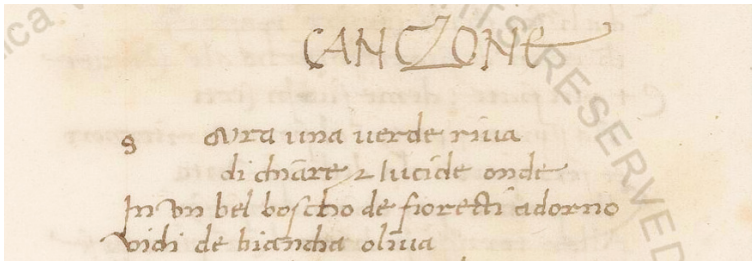 CANCZONE
s OVra una uerde riua
di chiare & lucide onde
In un bel boscho de fioretti adorno
vidi de biancha oliua
RESERVED